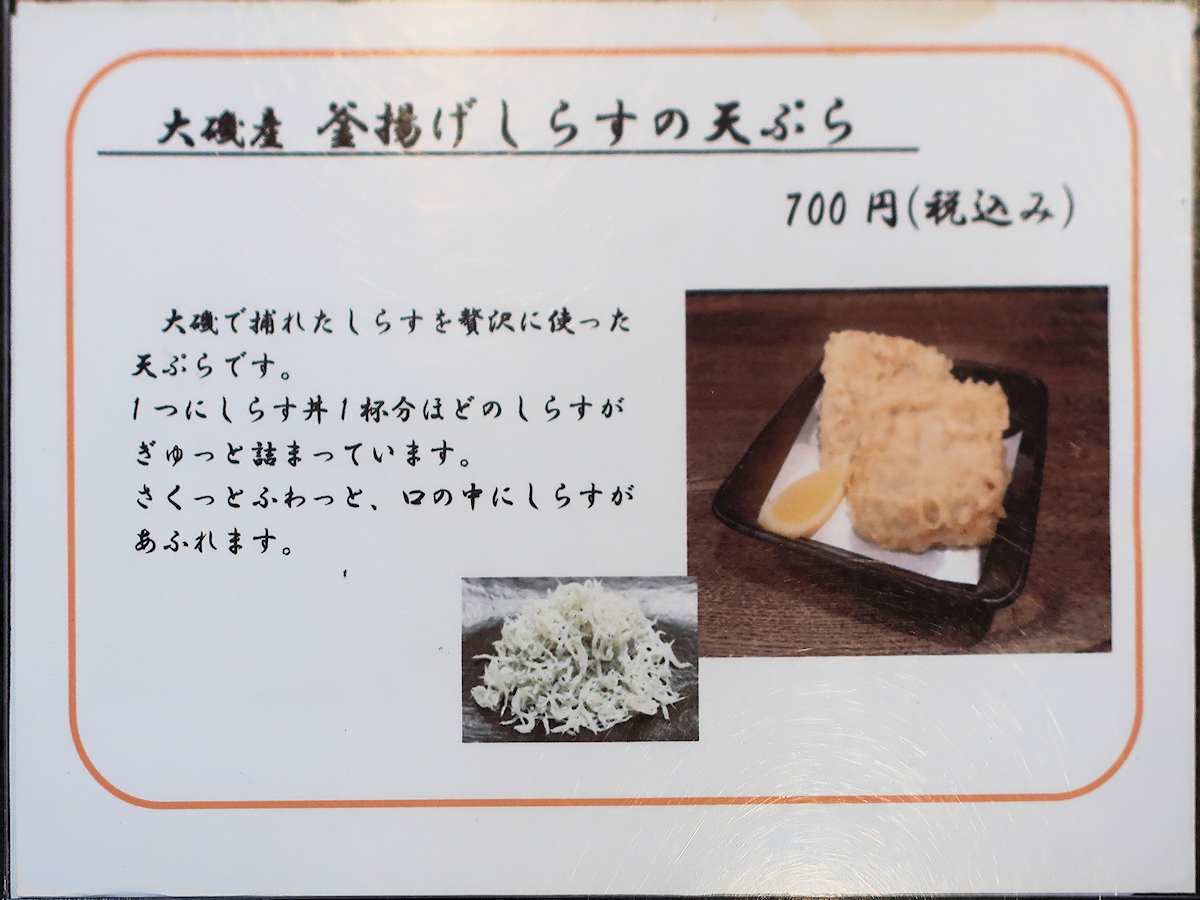 大磯産 釜揚げしらすの天ぷら
700 円(税込み)
大磯で捕れたしらすを贅沢に使った
天ぷらです。
1つにしらす丼1杯分ほどのしらすが
ぎゅっと詰まっています。
さくっとふわっと、口の中にしらすが
あふれます。